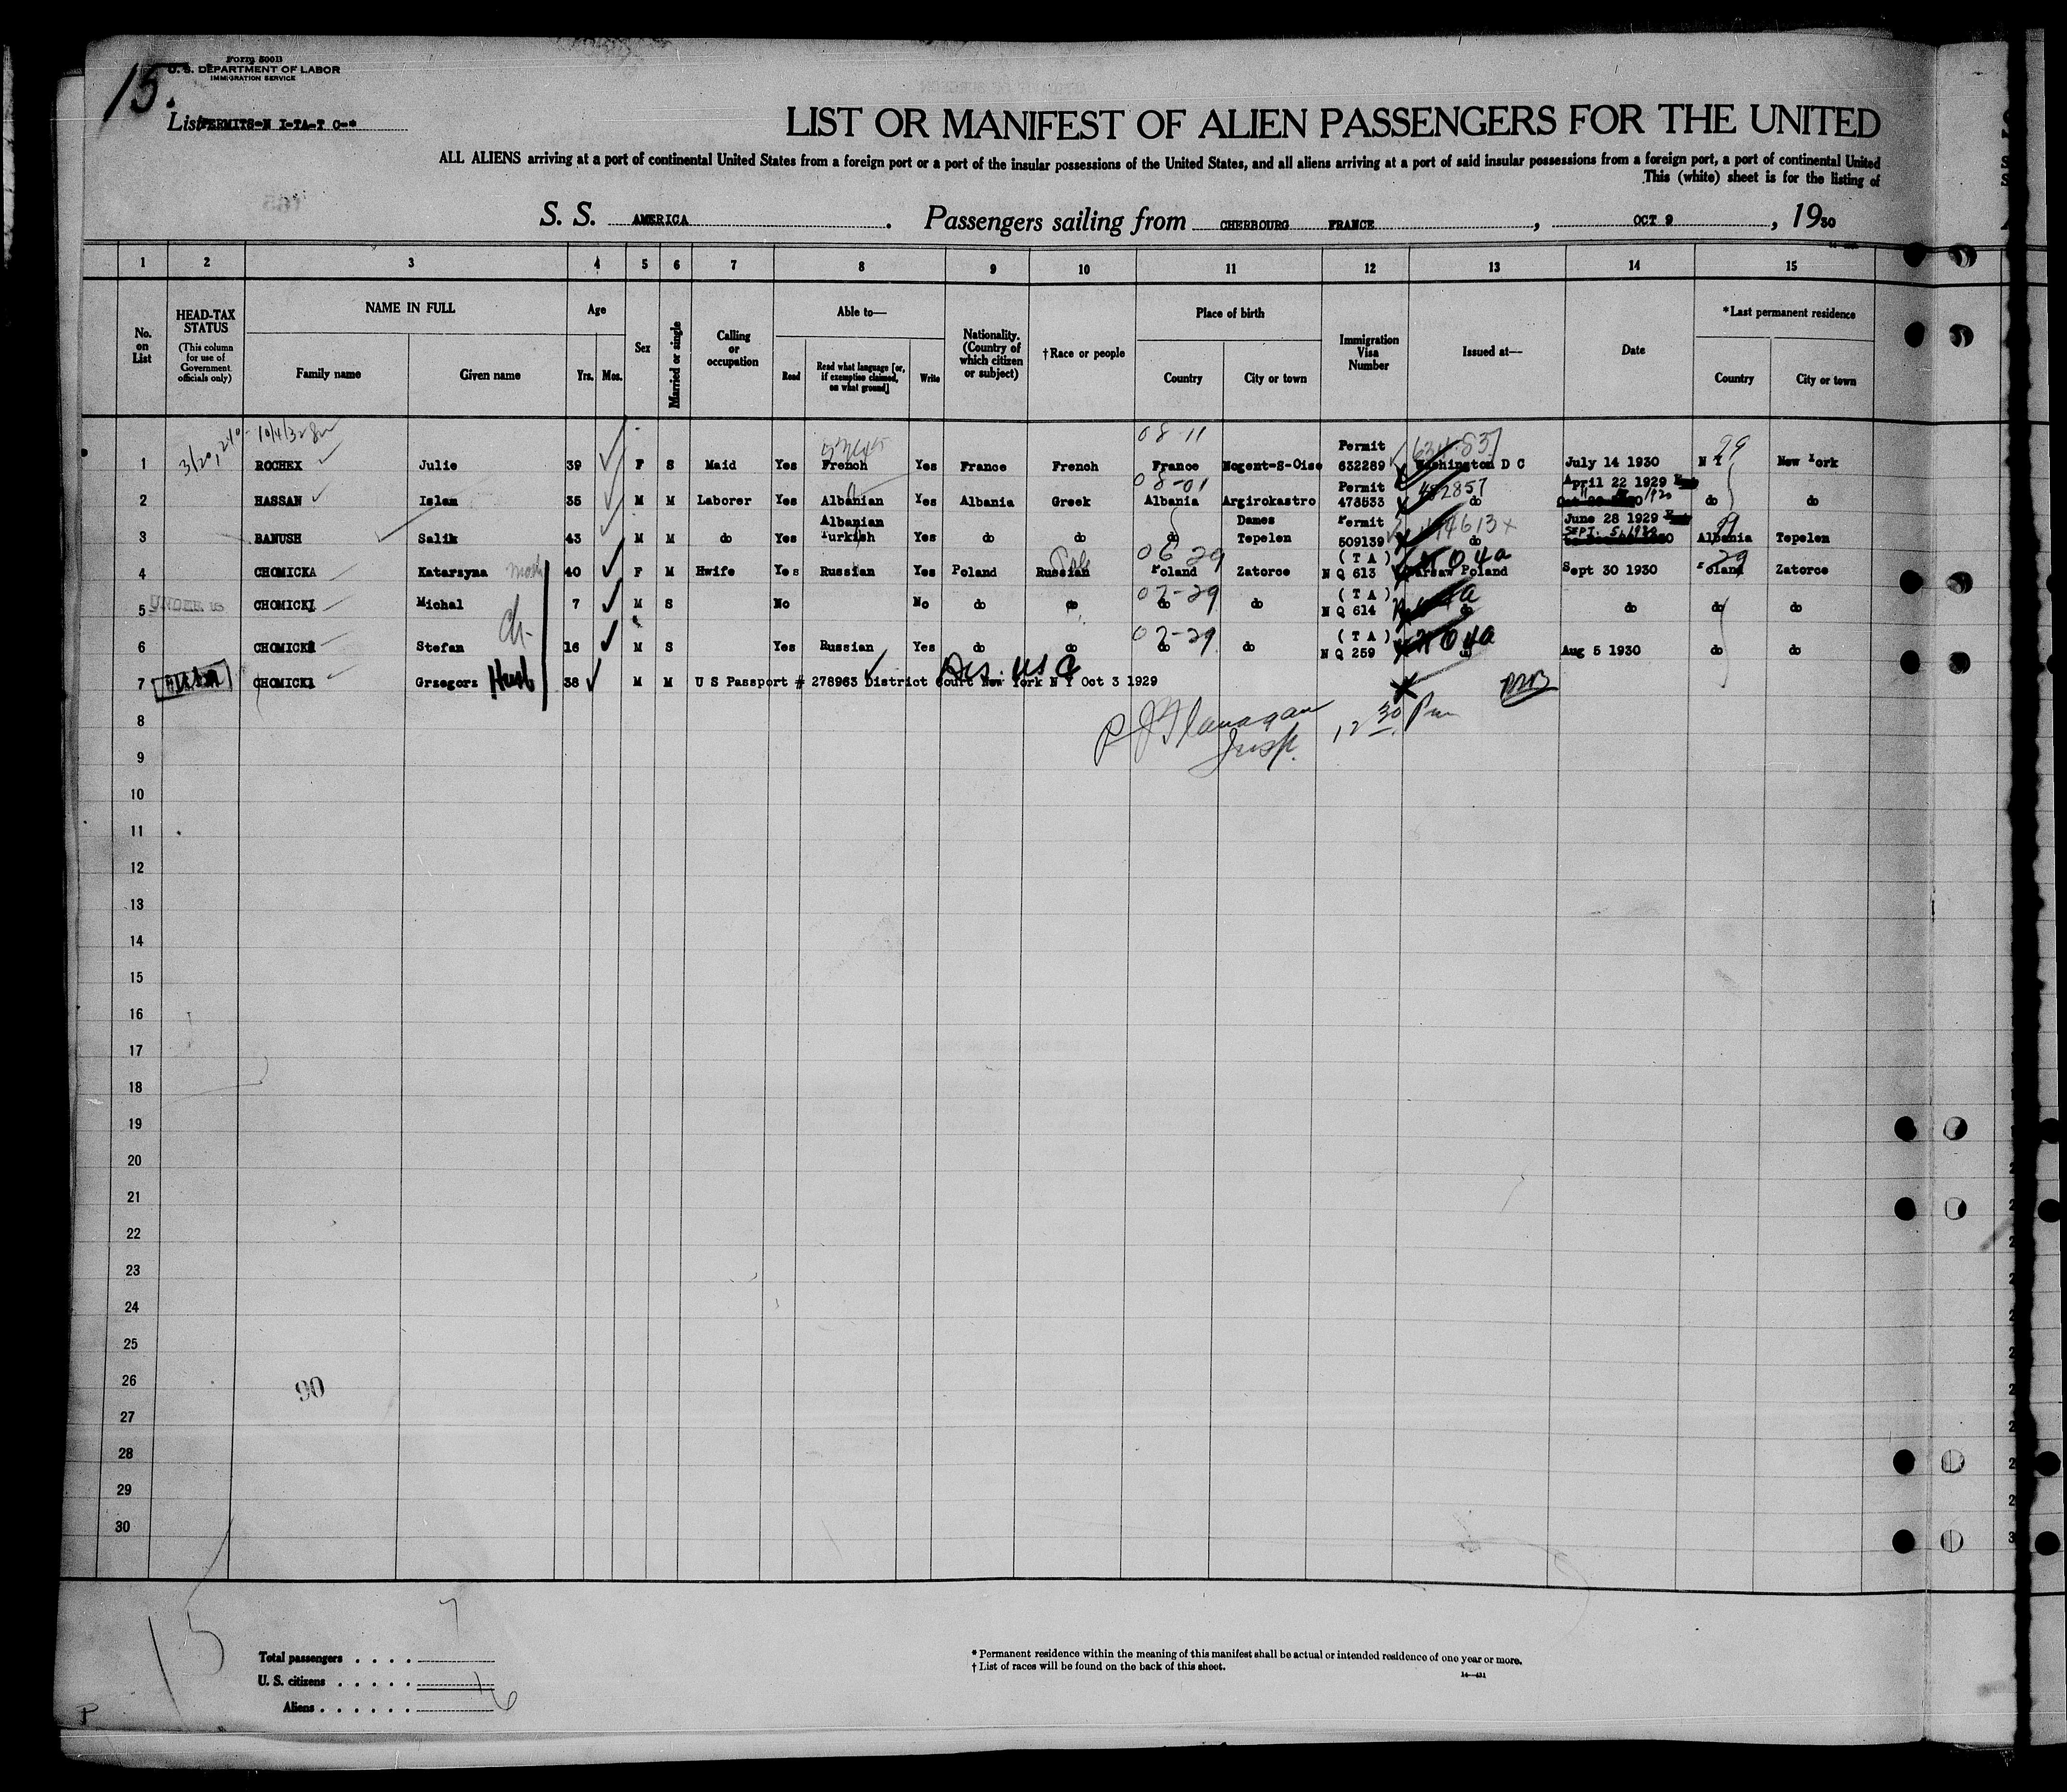 Form 500B
U. S. DEPARTMENT OF LABOR
IMMIGRATION SERVICE
15.
List PERMITS-N I-TA-T C-*
LIST OR MANIFEST OF ALIEN PASSENGERS FOR THE UNITED
ALL ALIENS arriving at a port of continental United States from a foreign port or a port of the insular possessions of the United States, and all aliens arriving at a port of said insular possessions from a foreign port, a port of continental United
This (white) sheet is for the listing of
S. S. AMERICA. Passengers sailing from CHERBOURG FRANCE, OCT 9, 1930
1 2 3 4 5 6 7 8 9 10 11 12 13 14 15
No. on List
HEAD-TAX STATUS (This column for use of Government officials only)
NAME IN FULL
Family name Given name
Age
Yrs. Mos.
Sex
Married or single
Calling or occupation
Able to—
Read Read what language [or, if exemption claimed, on what ground] Write
Nationality. (Country of which citizen or subject)
†Race or people
Place of birth
Country City or town
Immigration Visa Number
Issued at—
Date
*Last permanent residence
Country City or town
10/4/32 08-11 Permit 29
1 ROCHEX Julie 39 F S Maid Yes French Yes France French France Nogent-S-Oise 632289 Washington D C July 14 1930 N Y New York
08-01 Permit 482857 April 22 1929
2 HASSAN Islam 35 M M Laborer Yes Albanian Yes Albania Greek Albania Argirokastro 473533 do do do
Albanian Dames Permit June 28 1929
3 BANUSH Salik 43 M M do Yes Turkish Yes do do do Tepelen 509139 do SEPT. 5, Albania Tepelen
06-29 (T A) 404a 29
4 CHOMICKA Katarzyna 40 F M Hwife Yes Russian Yes Poland Russian Pole Poland Zatorce N Q 613 Warsaw Poland Sept 30 1930 Poland Zatorce
02-29 (T A)
5 UNDER 16 CHOMICKI Michal ch- 7 M S No No do do do do N Q 614 do do do do
02-29 (T A) 404a
6 CHOMICKI Stefan 16 M S Yes Russian Yes do do do do N Q 259 do Aug 5 1930 do do
7 CHOMICKI Grzegorz Husb 38 M M U S Passport # 278963 District Court New York N Y Oct 3 1929
USC
8 P J Flanagan 12 30 Pm
9 Insp.
10
11
12
13
14
15
16
17
18
19
20
21
22
23
24
25
26
90
27
28
29
30
15
7
Total passengers . . . .
U. S. citizens . . . . . 1
Aliens . . . . . . 6
* Permanent residence within the meaning of this manifest shall be actual or intended residence of one year or more.
† List of races will be found on the back of this sheet.
14—431
P